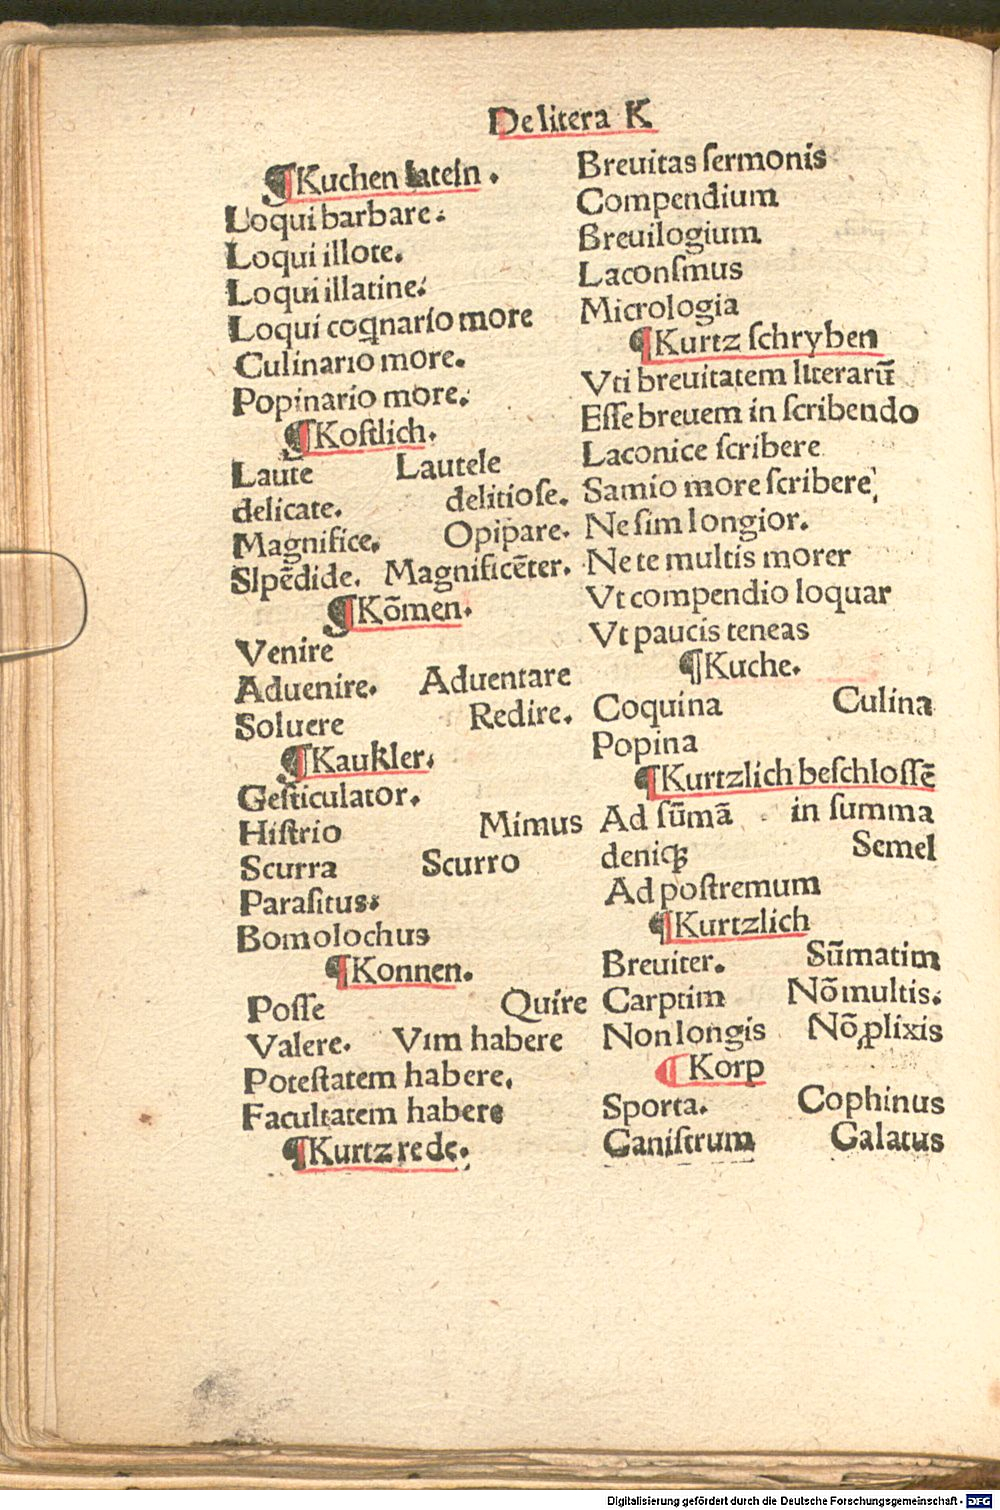 De litera K
¶Kuchen latein.
Loqui barbare.
Loqui illote.
Loqui illatine.
Loqui coqnario more
Culinario more.
Popinario more.
¶Koſtlich.
Laute Lautele
delicate. delitioſe.
Magnifice. Opipare.
Slpēdide. Magnificēter.
¶Kōmen.
Venire
Aduenire. Aduentare
Soluere Redire.
¶Kaukler.
Geſticulator.
Hiſtrio Mimus
Scurra Scurro
Paraſitus:
Bomolochus
¶Konnen.
Poſſe Quire
Valere. Vim habere
Poteſtatem habere.
Facultatem habere
¶Kurtz rede.
Breuitas ſermonis
Compendium
Breuilogium
Laconſmus
Micrologia
¶Kurtz ſchryben
Vti breuitatem literarū
Eſſe breuem in ſcribendo
Laconice ſcribere
Samio more ſcribere
Ne ſim longior.
Ne te multis morer
Vt compendio loquar
Vt paucis teneas
¶Kuche.
Coquina Culina
Popina
¶Kurtzlich beſchloſſē
Ad ſūmā in ſumma
deniqꝫ Semel
Ad poſtremum
¶Kurtzlich
Breuiter. Sūmatim
Carptim Nō multis.
Non longis Nō ꝓlixis
¶Korp
Sporta. Cophinus
Caniſtrum Calatus
Digitalisierung gefördert durch die Deutsche Forschungsgemeinschaft - DFG